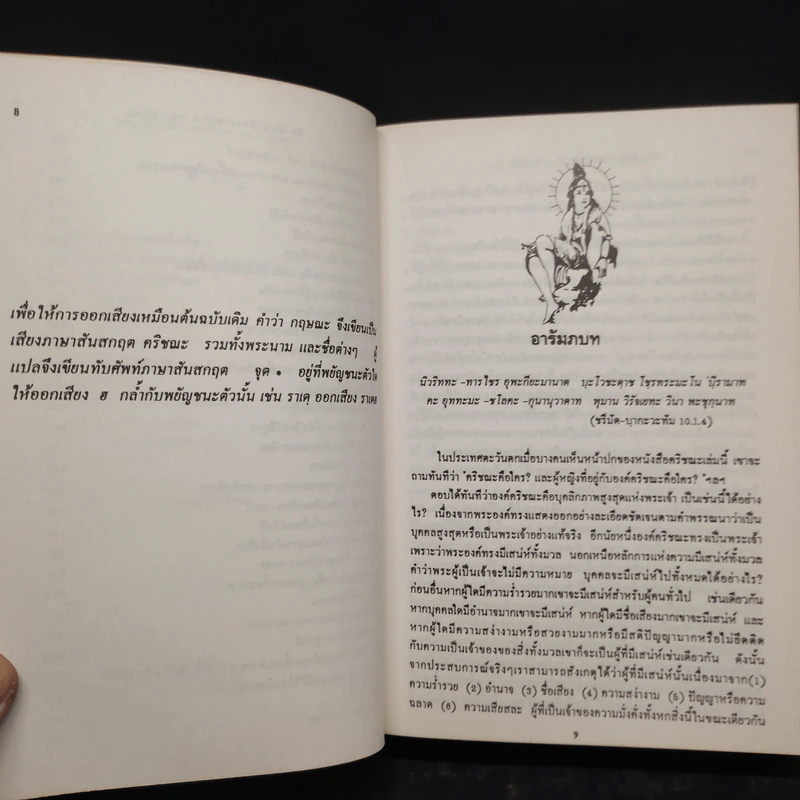 8
เพื่อให้การออกเสียงเหมือนต้นฉบับเดิม คำว่า กฤษณะ จึงเขียนเป็น
เสียงภาษาสันสกฤต คริชณะ รวมทั้งพระนาม และชื่อต่างๆ ผู้
แปลจึงเขียนทับศัพท์ภาษาสันสกฤต จุด • อยู่ที่พยัญชนะตัวใด
ให้ออกเสียง ฮ กล้ำกับพยัญชนะตัวนั้น เช่น ราเดฺ ออกเสียง ราเดฮ
อารัมภบท
นิวริททะ -ทารไชร อุพะกียะมานาด
คะ อุททะมะ -ชโลคะ -กุนานุวาดาท พุมาน วิรัจเยทะ วินา
(ชรีมัด-บฺากะวะทัม 10.1.4)
ในประเทศตะวันตกเมื่อบางคนเห็นหน้าปกของหนังสือคริชณะเล่มนี้ เขาจะ
ถามทันทีว่า "คริชณะคือใคร? และผู้หญิงที่อยู่กับองค์คริชณะคือใคร? "ฯลฯ
ตอบได้ทันทีว่าองค์คริชณะคือบุคลิกภาพสูงสุดแห่งพระเจ้า เป็นเช่นนี้ได้อย่าง
ไร? เนื่องจากพระองค์ทรงแสดงออกอย่างละเอียดชัดเจนตามคำพรรณนาว่าเป็น
บุคคลสูงสุดหรือเป็นพระเจ้าอย่างแท้จริง อีกนัยหนึ่งองค์คริชณะทรงเป็นพระเจ้า
เพราะว่าพระองค์ทรงมีเสน่ห์ทั้งมวล นอกเหนือหลักการแห่งความมีเสน่ห์ทั้งมวล
คำว่าพระผู้เป็นเจ้าจะไม่มีความหมาย บุคคลจะมีเสน่ห์ไปทั้งหมดได้อย่างไร?
ก่อนอื่นหากผู้ใดมีความร่ำรวยมากเขาจะมีเสน่ห์สำหรับผู้คนทั่วไป เช่นเดียวกัน
หากบุคคลใดมีอำนาจมากเขาจะมีเสน่ห์ หากผู้ใดมีชื่อเสียงมากเขาจะมีเสน่ห์ และ
หากผู้ใดมีความสง่างามหรือสวยงามมากหรือมีสติปัญญามากหรือไม่ยึดติด
กับความเป็นเจ้าของของสิ่งทั้งมวลเขาก็จะเป็นผู้ที่มีเสน่ห์เช่นเดียวกัน ดังนั้น
จากประสบการณ์จริงๆเราสามารถสังเกตุได้ว่าผู้ที่มีเสน่ห์นั้นเนื่องมาจาก(1)
ความร่ำรวย (2) อำนาจ (3) ชื่อเสียง (4) ความสง่างาม (5) ปัญญาหรือความ
ฉลาด (6) ความเสียสละ ผู้ที่เป็นเจ้าของความมั่งคั่งทั้งหกสิ่งนี้ในขณะเดียวกัน
9